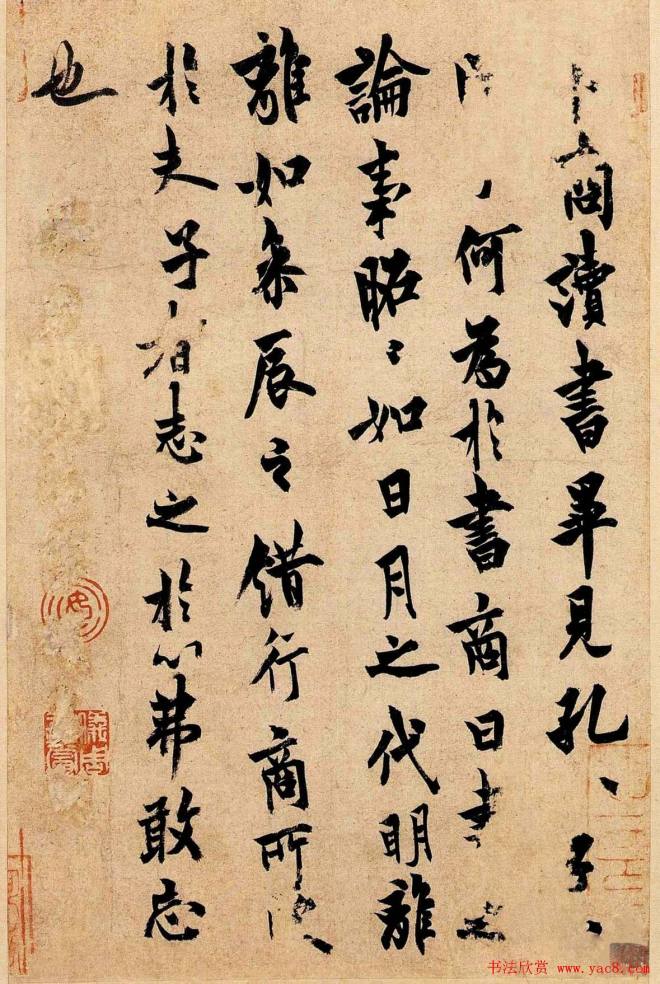 商讀書畢見孔〻子〻
何為於書商曰書之
論事昭〻如日月之代明離
離如參辰之錯行商所
於夫子者志之於心弗敢忘
也
书法欣赏 www.yac8.com